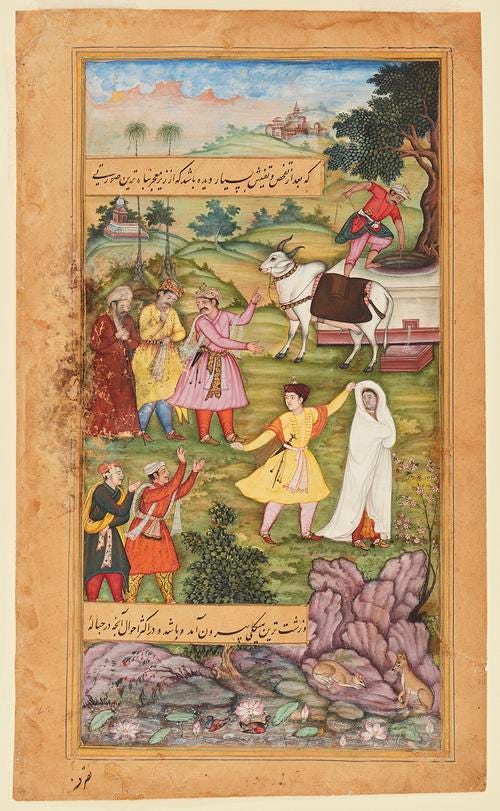 که بعد از تفحص و تفتیش بسیار دیده باشد که از زیر معجر تباه ترین صورتی
و زشت ترین هیکلی بیرون آمده باشد و در اکثر احوال آنچه در حباله